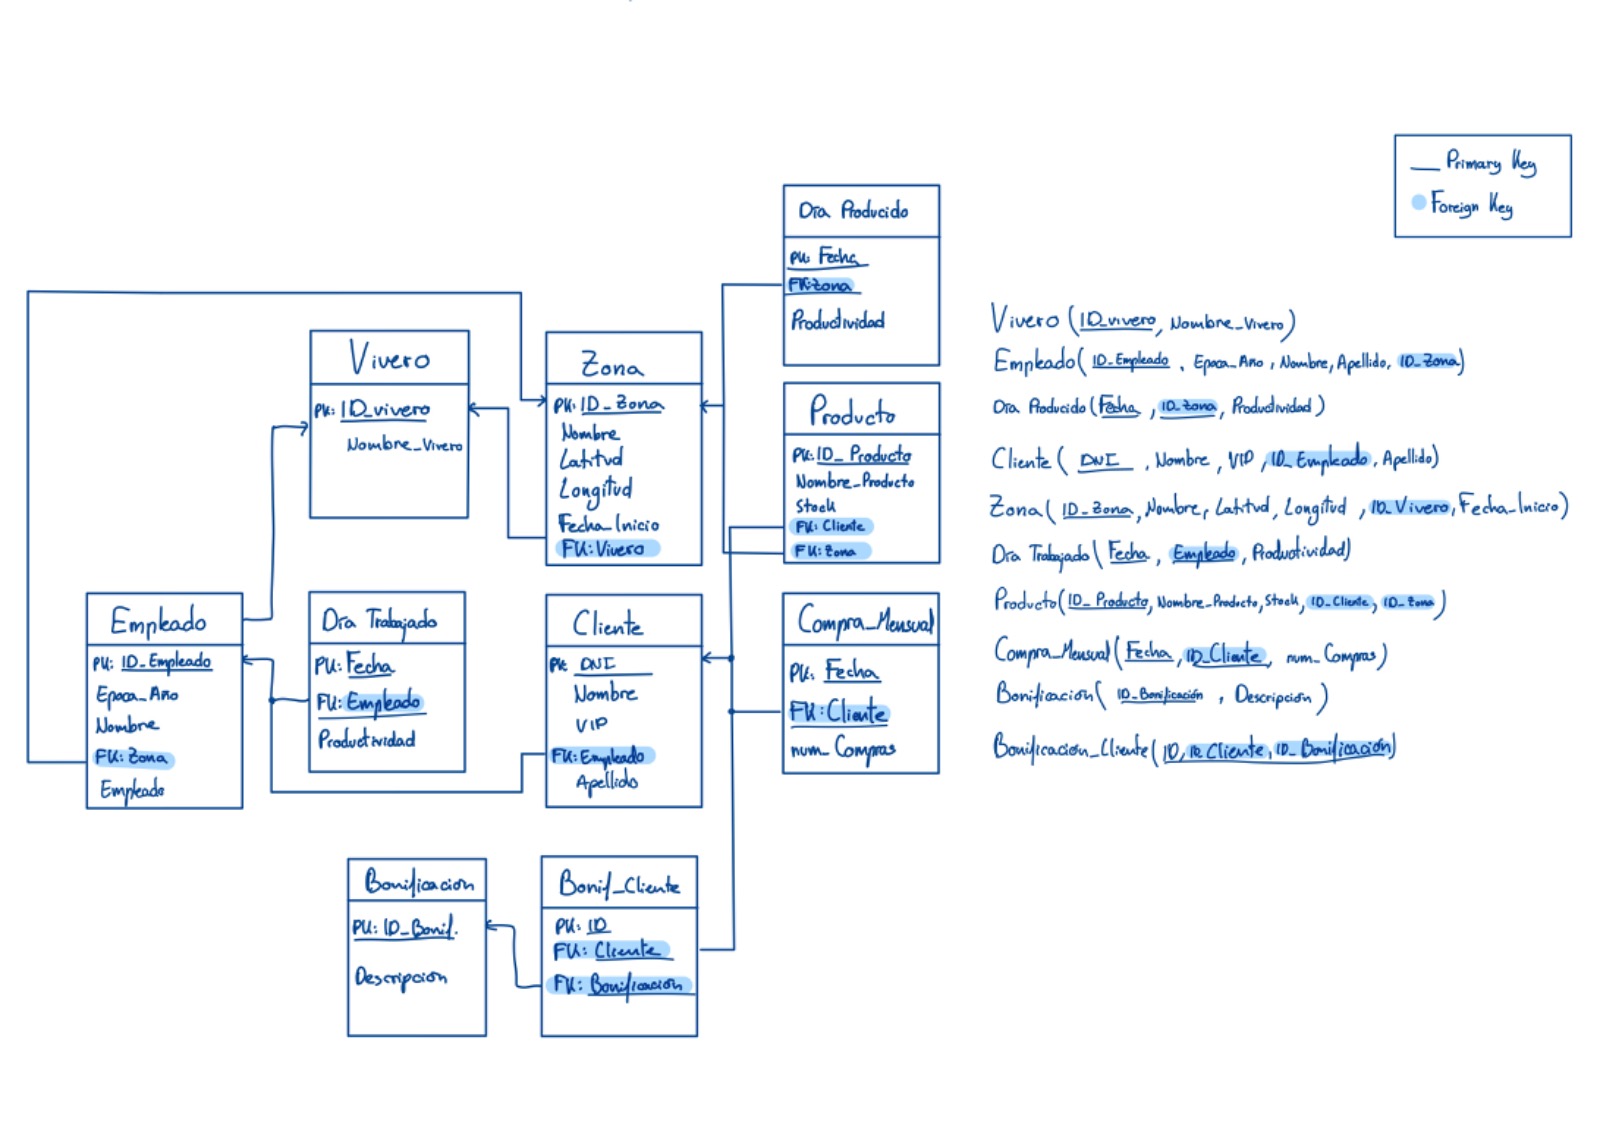 Primary Key
Foreign Key
Día Producido
PK: Fecha
FK: Zona
Productividad
Vivero
PK: ID_vivero
Nombre_Vivero
Zona
PK: ID_Zona
Nombre
Latitud
Longitud
Fecha_Inicio
FK: Vivero
Producto
PK: ID_Producto
Nombre_Producto
Stock
FK: Cliente
FK: Zona
Empleado
PK: ID_Empleado
Epoca_Año
Nombre
FK: Zona
Empleado
Día Trabajado
PK: Fecha
FK: Empleado
Productividad
Cliente
PK: DNI
Nombre
VIP
FK: Empleado
Apellido
Compra_Mensual
PK: Fecha
FK: Cliente
num_Compras
Bonificacion
PK: ID_Bonif.
Descripción
Bonif_Cliente
PK: ID
FK: Cliente
FK: Bonificación
Vivero (ID_vivero, Nombre_Vivero)
Empleado (ID_Empleado, Epoca_Año, Nombre, Apellido, ID_Zona)
Día Producido (Fecha, ID_Zona, Productividad)
Cliente (DNI, Nombre, VIP, ID_Empleado, Apellido)
Zona (ID_Zona, Nombre, Latitud, Longitud, ID_Vivero, Fecha_Inicio)
Día Trabajado (Fecha, Empleado, Productividad)
Producto (ID_Producto, Nombre_Producto, Stock, ID_Cliente, ID_Zona)
Compra_Mensual (Fecha, ID_Cliente, num_Compras)
Bonificación (ID_Bonificación, Descripción)
Bonificacion_Cliente (ID, ID Cliente, ID_Bonificación)